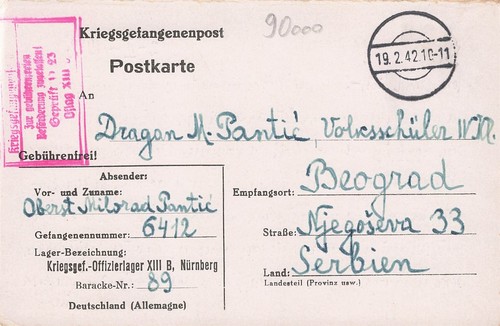 90000
Kriegsgefangenenpost
19.2.42.10-11
Postkarte
Geprüft 23
Oflag XIII
An
Dragan M. Pantić, Volksschüler
Gebührenfrei!
Absender:
Vor- und Zuname:
Oberst Milorad Pantić
Gefangenennummer: 6412
Lager-Bezeichnung:
Kriegsgef.-Offizierlager XIII B, Nürnberg
Baracke-Nr.: 89
Deutschland (Allemagne)
Empfangsort: Beograd
Straße: Njegoševa 33
Land: Serbien
Landesteil (Provinz usw.)